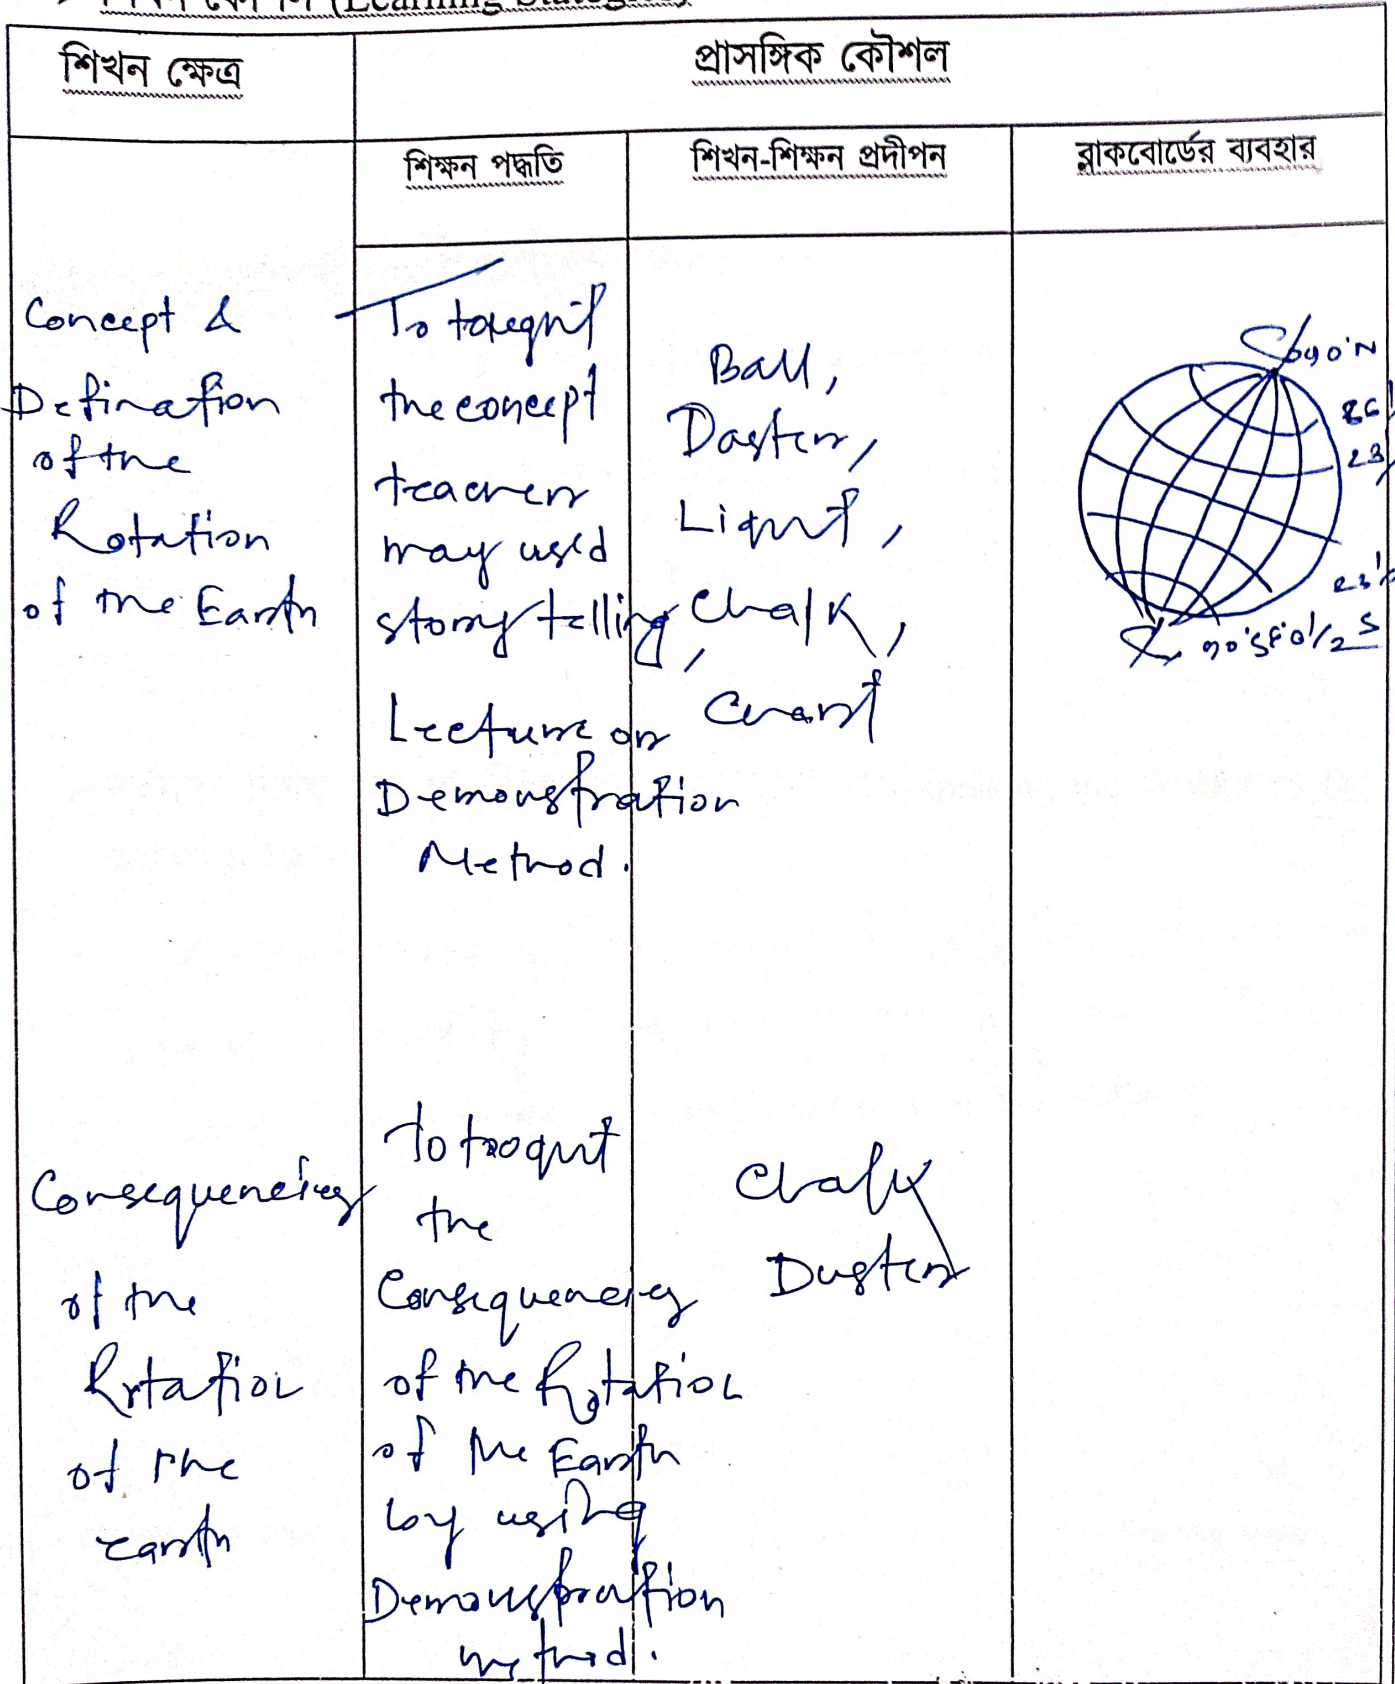 (Learning
শিখন ক্ষেত্র
প্রাসঙ্গিক কৌশল
শিক্ষন পদ্ধতি
শিখন-শিক্ষন প্রদীপন
ব্লাকবোর্ডের ব্যবহার
Concept &
Defination
of the
Rotation
of the Earth
To
the concept
teacher
may used
story telling,
Lecture or
Demonstration
Method.
Ball,
Daster,
Light,
Chalk,
Chart
90°N
23
23½
Consequencies
of the
Rotation
of the
earth
To
the
Consequencies
of the Rotation
of the Earth
by using
Demonstration
method.
Chalk
Duster